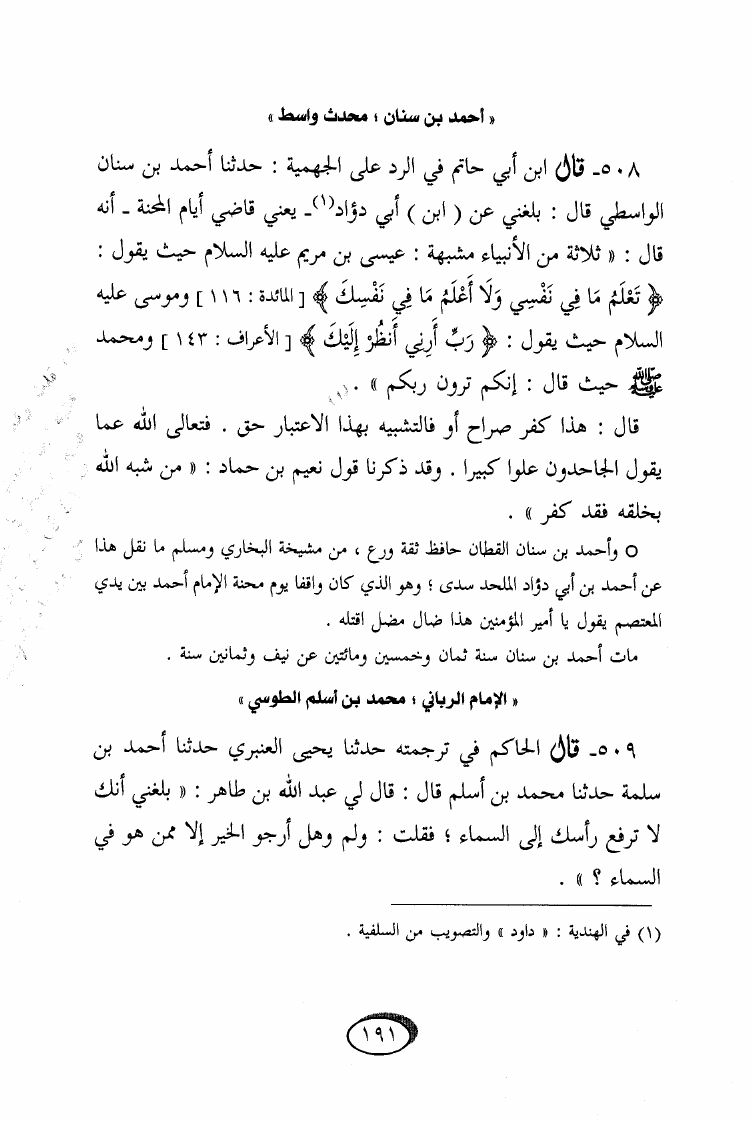 « أحمد بن سنان ؛ محدث واسط »
٥٠٨ـ قال ابن أبي حاتم في الرد على الجهمية : حدثنا أحمد بن سنان
الواسطي قال : بلغني عن ( ابن ) أبي دؤاد(١)ـ يعني قاضي أيام المحنة ـ أنه
قال : « ثلاثة من الأنبياء مشبهة : عيسى بن مريم عليه السلام حيث يقول :
﴿ تَعْلَمُ مَا فِي نَفْسِي وَلَا أَعْلَمُ مَا فِي نَفْسِكَ ﴾ [ المائدة : ١١٦ ] وموسى عليه
السلام حيث يقول : ﴿ رَبِّ أَرِنِي أَنظُرْ إِلَيْكَ ﴾ [ الأعراف : ١٤٣ ] ومحمد
ﷺ حيث قال : إنكم ترون ربكم » .
قال : هذا كفر صراح أو فالتشبيه بهذا الاعتبار حق . فتعالى الله عما
يقول الجاحدون علوا كبيرا . وقد ذكرنا قول نعيم بن حماد : « من شبه الله
بخلقه فقد كفر » .
○ وأحمد بن سنان القطان حافظ ثقة ورع ، من مشيخة البخاري ومسلم ما نقل هذا
عن أحمد بن أبي دؤاد الملحد سدى ؛ وهو الذي كان واقفا يوم محنة الإمام أحمد بين يدي
المعتصم يقول يا أمير المؤمنين هذا ضال مضل اقتله .
مات أحمد بن سنان سنة ثمان وخمسين ومائتين عن نيف وثمانين سنة .
« الإمام الرباني ؛ محمد بن أسلم الطوسي »
٥٠٩ـ قال الحاكم في ترجمته حدثنا يحيى العنبري حدثنا أحمد بن
سلمة حدثنا محمد بن أسلم قال : قال لي عبد الله بن طاهر : « بلغني أنك
لا ترفع رأسك إلى السماء ؛ فقلت : ولم وهل أرجو الخير إلا ممن هو في
السماء ؟ » .
(١) في الهندية : « داود » والتصويب من السلفية .
١٩١